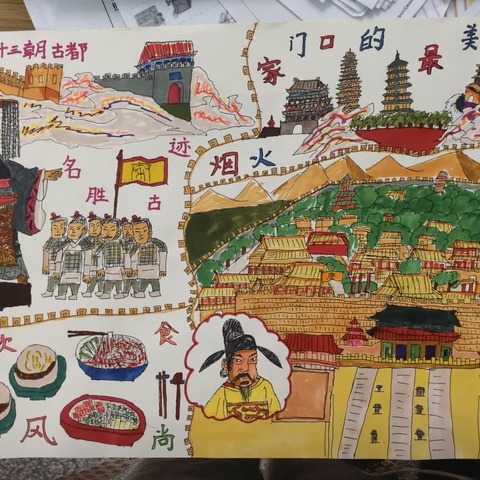 十三朝古都
家门口的最美
烟火
名胜古迹
饮食风尚